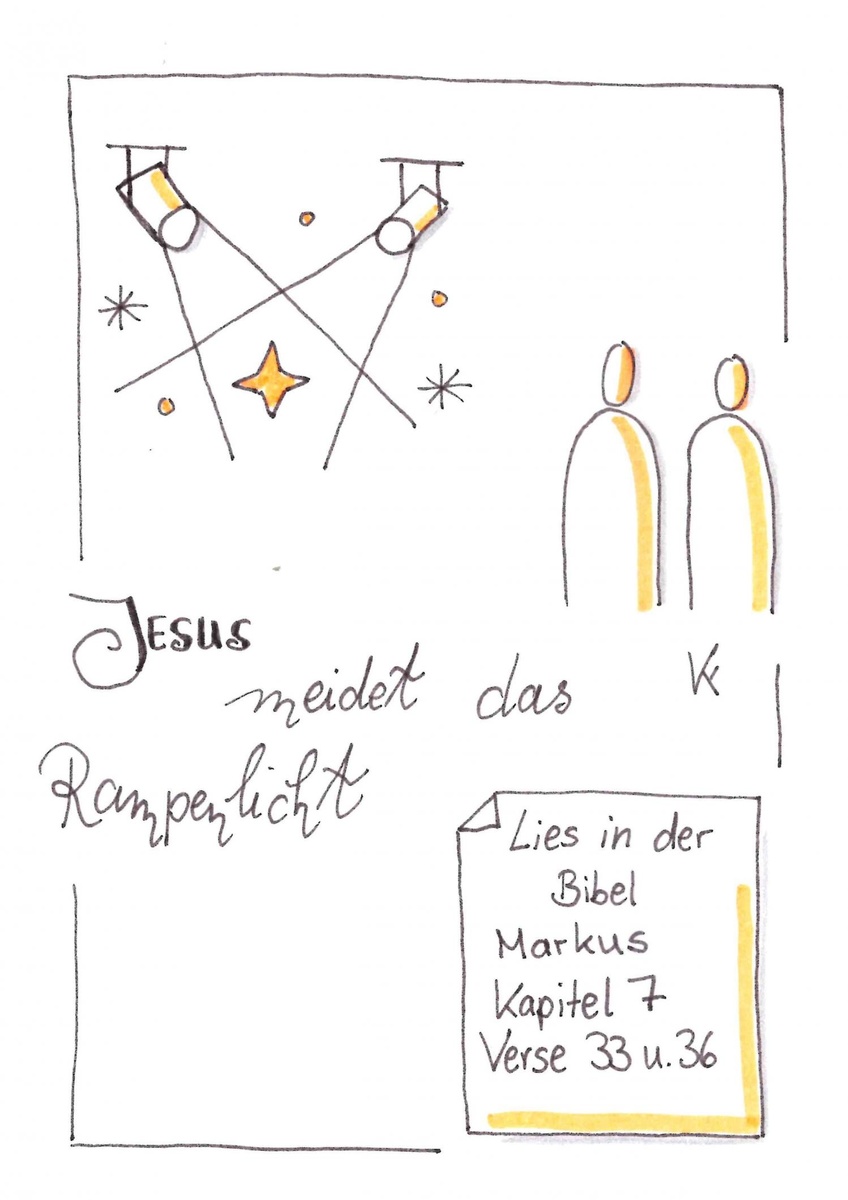 JESUS
meidet das K
Rampenlicht
Lies in der
Bibel
Markus
Kapitel 7
Verse 33 u. 36